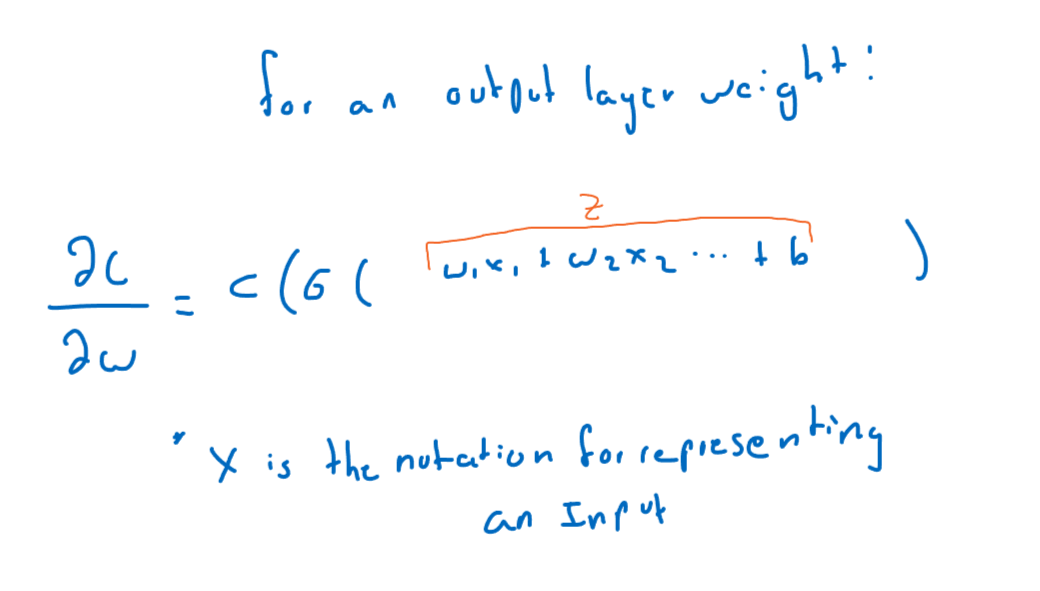 for an output layer weight:
z
∂c/∂w = c(σ( w₁x₁ + w₂x₂ ... + b )
* X is the notation for representing
an Input